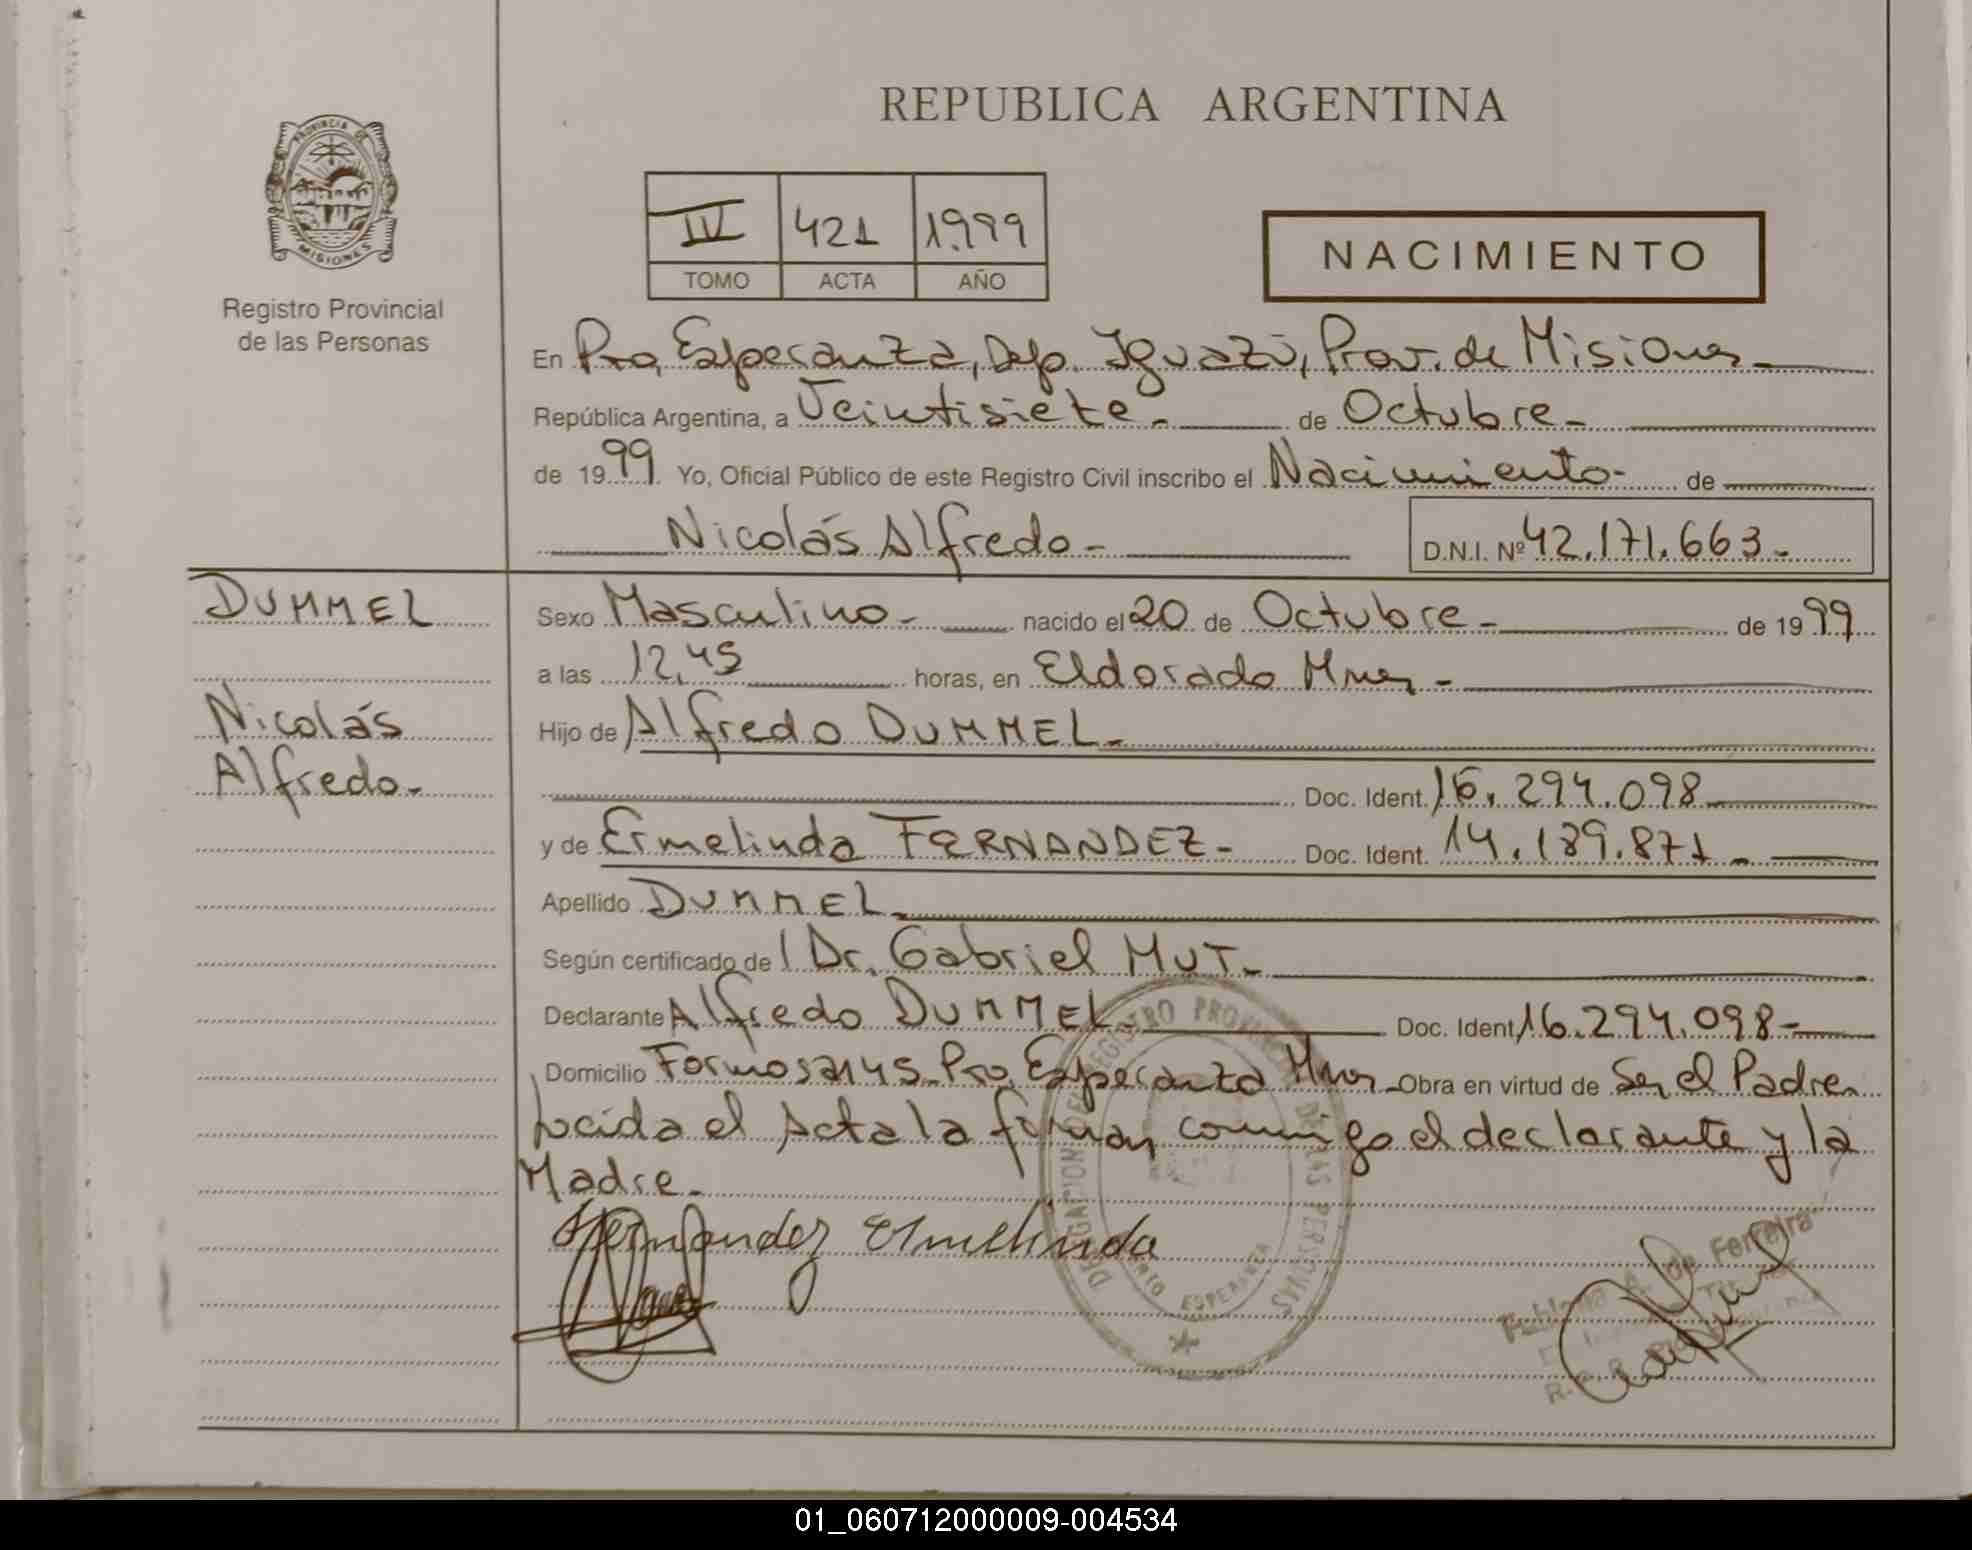 REPUBLICA ARGENTINA
PROVINCIA DE
MISIONES
Registro Provincial
de las Personas
IV 421 1999
TOMO ACTA AÑO
NACIMIENTO
En Pto. Esperanza, Dep. Iguazú, Prov. de Misiones-
República Argentina, a Veintisiete- de Octubre-
de 1999 Yo, Oficial Público de este Registro Civil inscribo el Nacimiento- de
Nicolás Alfredo- D.N.I. Nº 42.171.663-
DUMMEL
Nicolás
Alfredo-
Sexo Masculino- nacido el 20 de Octubre- de 1999
a las 12,45 horas, en Eldorado Mnes-
Hijo de Alfredo DUMMEL-
Doc. Ident. 16.294.098
y de Ermelinda FERNANDEZ- Doc. Ident. 14.189.871-
Apellido DUMMEL-
Según certificado de l Dr. Gabriel MUT-
Declarante Alfredo DUMMEL- Doc. Ident. 16.294.098-
Domicilio Formosa 145-Pto. Esperanza Mnes- Obra en virtud de Ser el Padre
Leída el Acta la firman conmigo el declarante y la
Madre-
Fernandez Ermelinda
DELEGACION DEL REGISTRO PROVINCIAL DE LAS PERSONAS
PUERTO ESPERANZA
de Ferreira
01_060712000009-004534